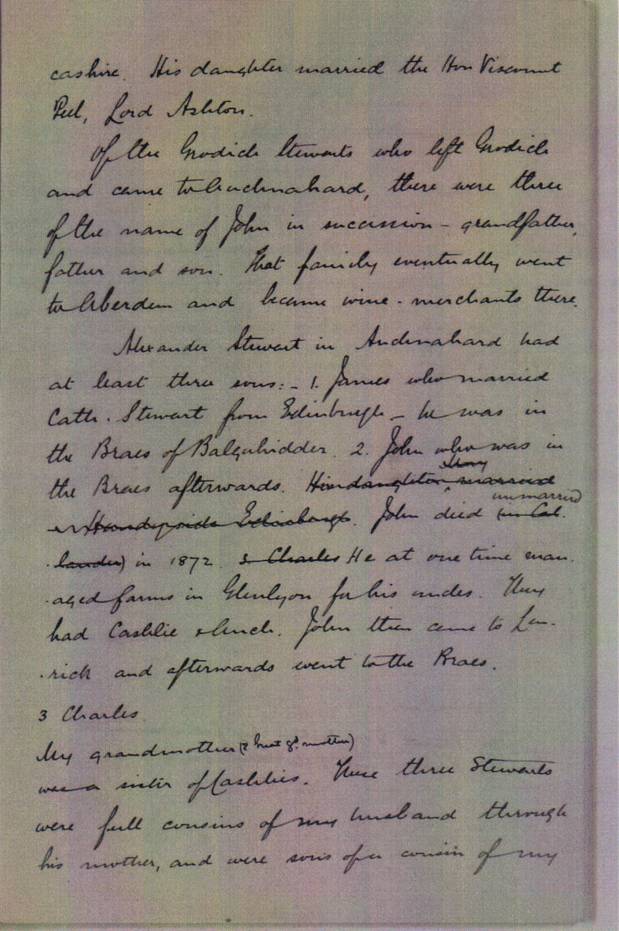 cashire. His daughter married the Hon Viscount
Peel, Lord Ashton.
Of the Grodich Stewarts who left Grodich
and came to Auchnahard, there were three
of the name of John in succession - grandfather,
father and son. That family eventually went
to Aberdeen and became wine-merchants there.
Alexander Stewart in Auchnahard had
at least three sons:- 1. James who married
Cath. Stewart from Edinburgh - he was in
the Braes of Balquhidder. 2. John who was in
the Braes afterwards. His daughter Mary married
Edinburgh. John died (in Cal- unmarried
-lander) in 1872. 3. Charles He at one time man-
-aged farms in Glenlyon for his uncles. They
had Cashlie & Inch. John then came to Len-
-rick and afterwards went to the Braes.
3 Charles
My grandmother (? great gd. mother)
was a sister of Cashlies. These three Stewarts
were full cousins of my husband through
his mother, and were sons of a cousin of my